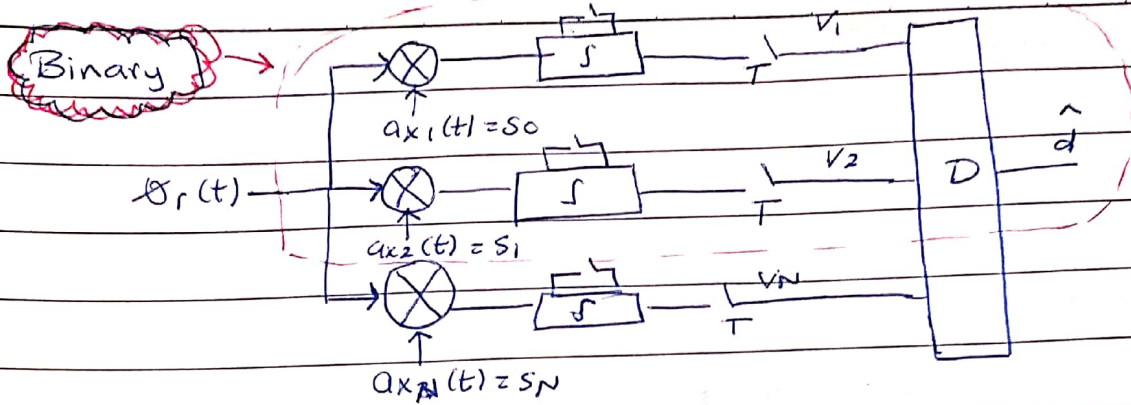 Binary
∫
V1
T
ax1(t) = S0
r(t)
∫
V2
T
D
d̂
ax2(t) = S1
∫
VN
T
axN(t) = SN